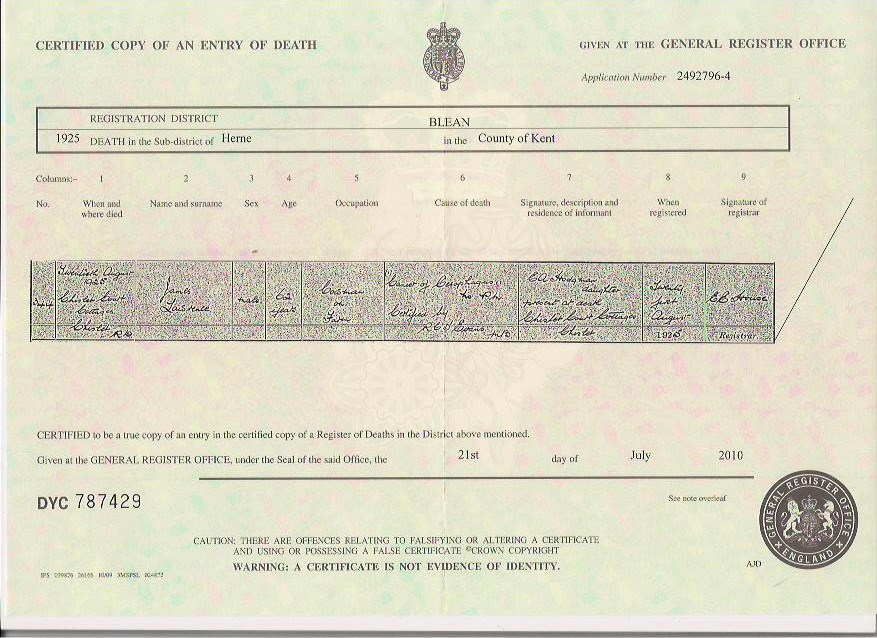 CERTIFIED COPY OF AN ENTRY OF DEATH
GIVEN AT THE GENERAL REGISTER OFFICE
Application Number 2492796-4
REGISTRATION DISTRICT BLEAN
1925 DEATH in the Sub-district of Herne in the County of Kent
Columns:- 1 2 3 4 5 6 7 8 9
No. When and where died Name and surname Sex Age Occupation Cause of death Signature, description and residence of informant When registered Signature of registrar
Twentieth August
1925
Chislet Court
Cottages
Chislet
James
male
Cancer of
Certified by
daughter
present at death
Chislet Court Cottages
Chislet
Twenty
first
August
1925
Registrar
CERTIFIED to be a true copy of an entry in the certified copy of a Register of Deaths in the District above mentioned.
Given at the GENERAL REGISTER OFFICE, under the Seal of the said Office, the 21st day of July 2010
DYC 787429
See note overleaf
CAUTION: THERE ARE OFFENCES RELATING TO FALSIFYING OR ALTERING A CERTIFICATE
AND USING OR POSSESSING A FALSE CERTIFICATE ©CROWN COPYRIGHT
WARNING: A CERTIFICATE IS NOT EVIDENCE OF IDENTITY.
GENERAL REGISTER OFFICE
ENGLAND
AJD